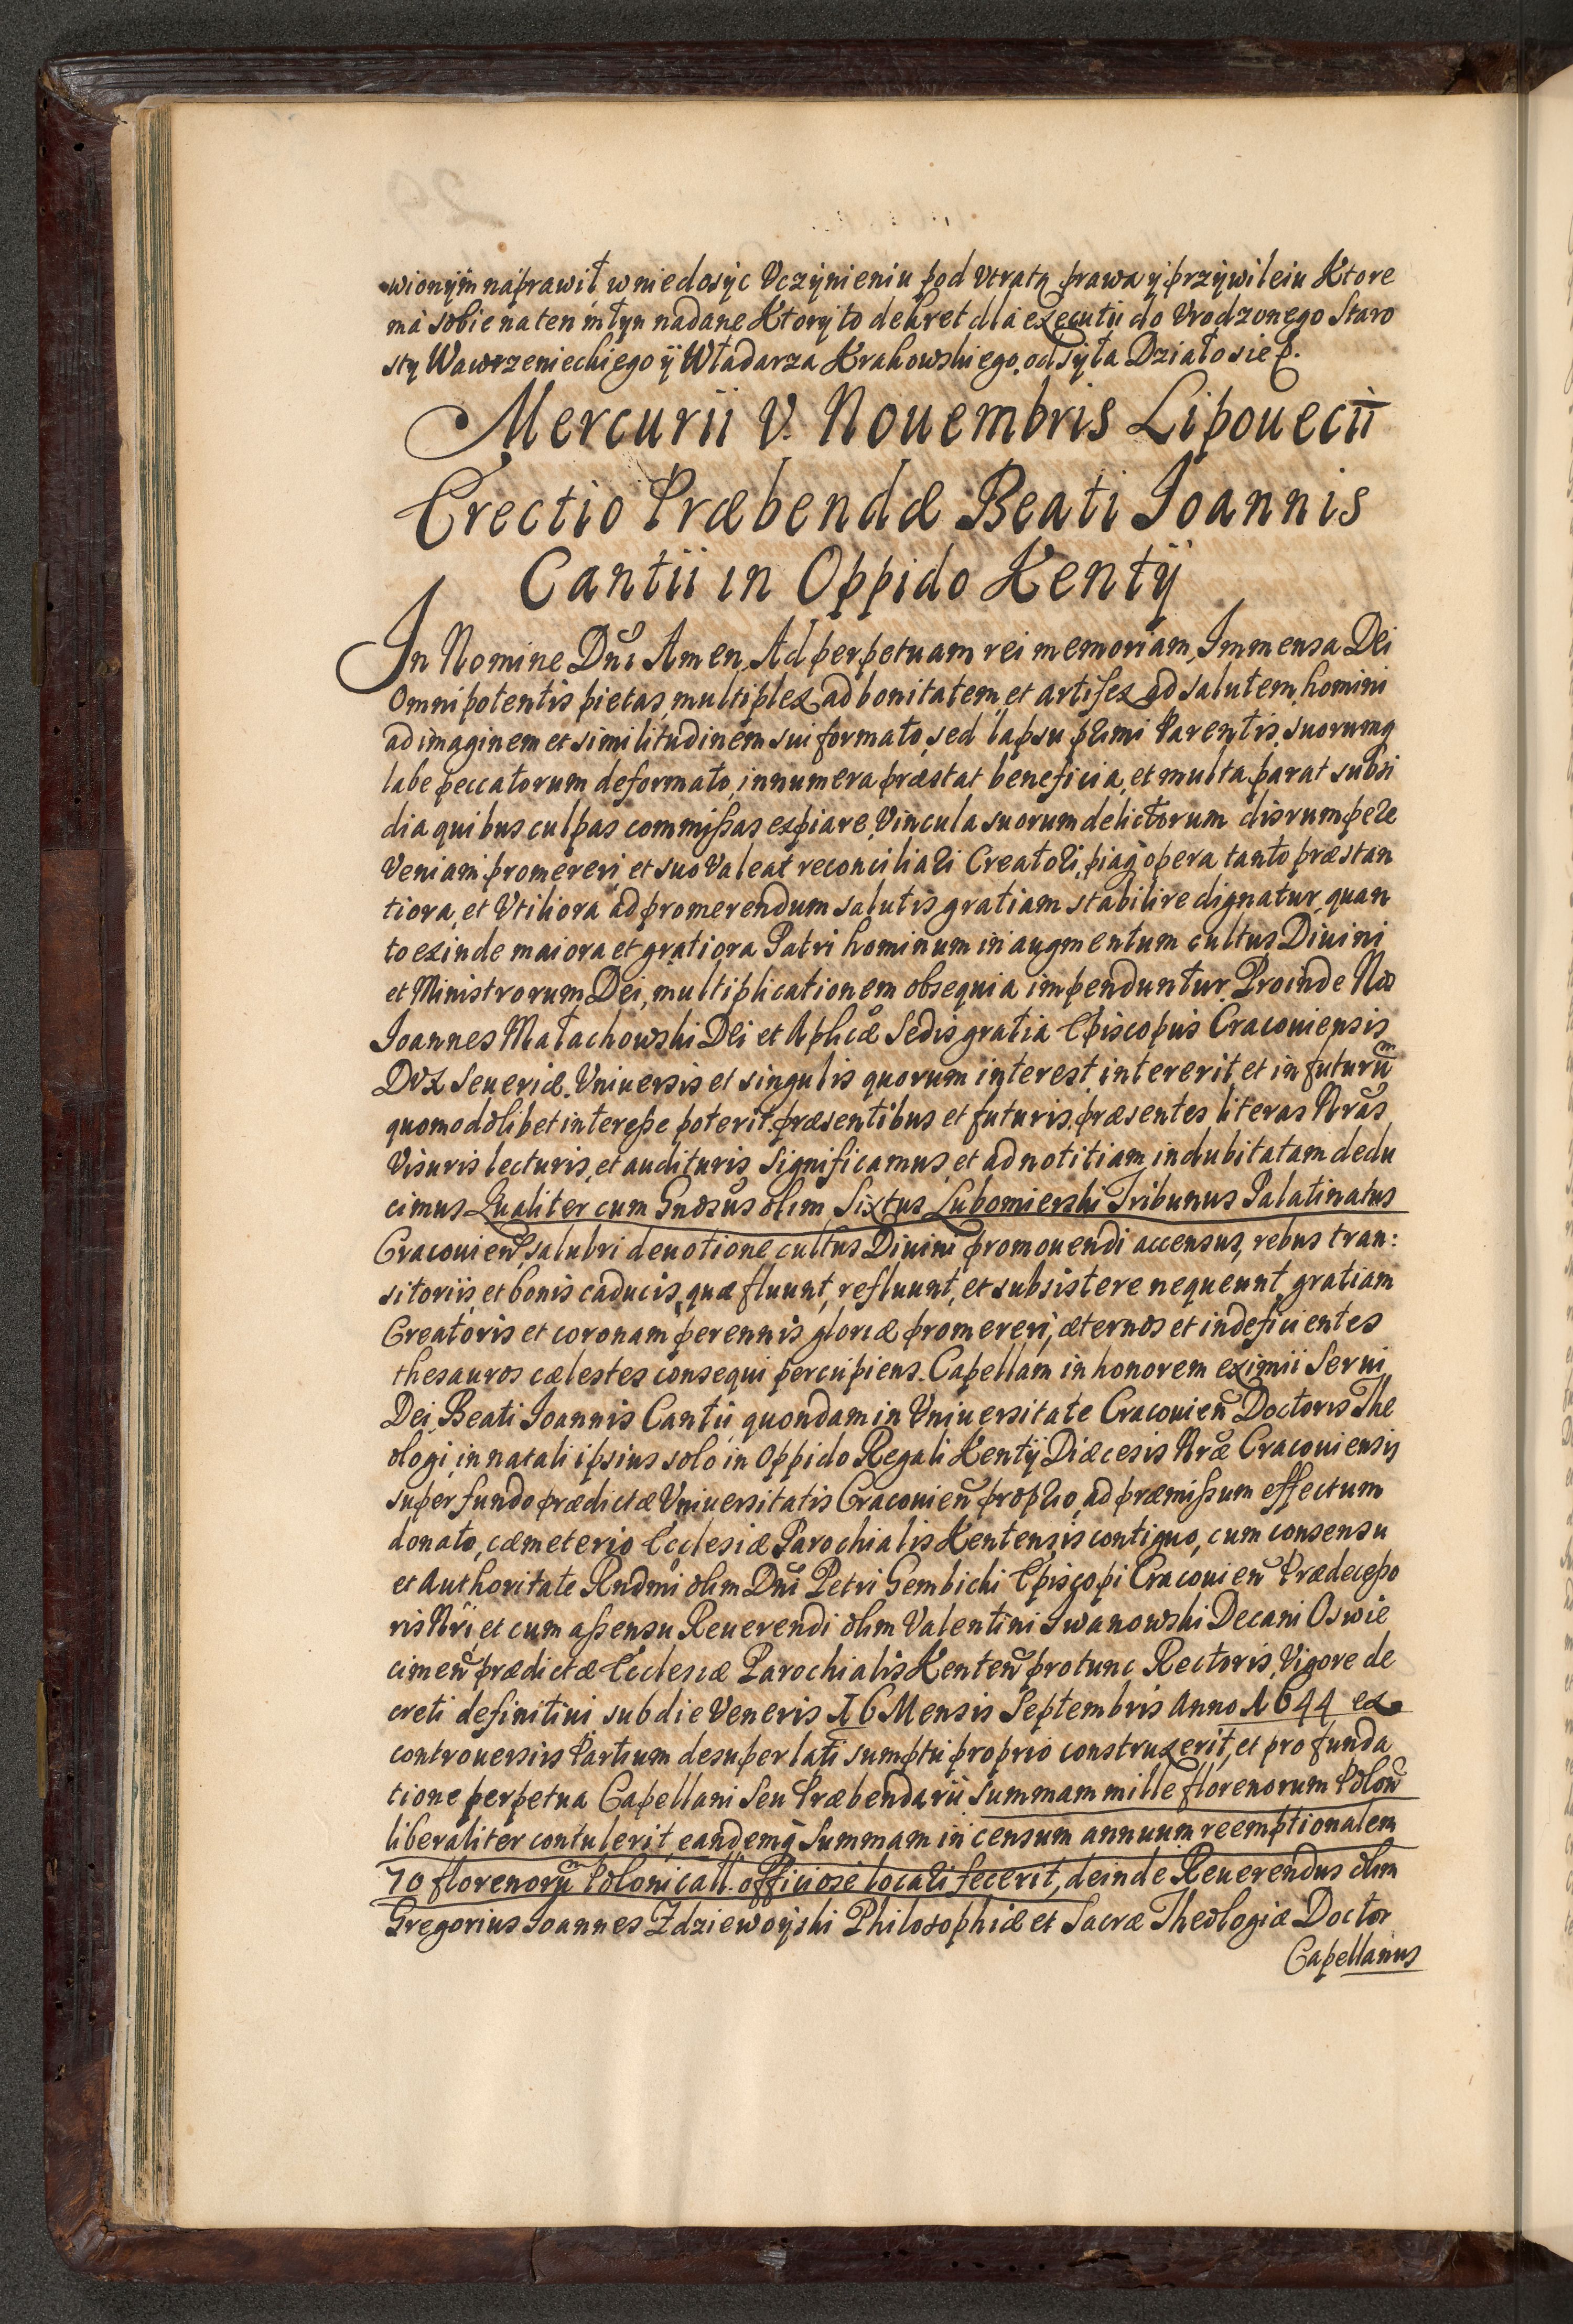 wionÿm náprawił w niedosÿc Vczÿnieniu pod Vtratą prawa ÿ przÿwileiu Ktore
má sobie na ten młyn nadane Ktorÿ to dekret dlá executii do Vrodzonego Staro
stÿ Wawrzenieckiego ÿ Władarza Krakowskiego odsÿła Działo sie p.
Mercurii V. Nouembris Lipouecii
Erectio Præbendæ Beati Joannis
Cantii in Oppido Kentÿ
In Nomine Dni Amen, Ad perpetuam rei memoriam, Immensa Dei
Omnipotentis pietas, multiplex ad bonitatem, et artifex ad salutem, homini
ad imaginem et similitudinem sui formato, sed lapsu primi Parentis, suorumq
labe peccatorum deformato, innumera præstat beneficia, et multa parat subsi
dia quibus culpas commissas expiare, Vincula suorum delictorum disrumpere
Veniam promereri et suo Valeat reconciliari Creatori, piaq opera tanto præstan
tiora, et Vtiliora ad promerendum salutis gratiam stabilire dignatur, quan
to exinde maiora et gratiora Patri hominum in augmentum cultus Diuini
et Ministrorum Dei, multiplicationem obsequia impenduntur. Proinde Nos
Joannes Małachowski Dei et Aplicæ Sedis gratia Episcopus Cracouiensis
Dux Seueriæ. Vniuersis et singulis quorum interest, intererit, et in futurum
quomodolibet interesse poterit, præsentibus et futuris, præsentes literas Nras
Visuris lecturis, et audituris, Significamus, et ad notitiam indubitatam dedu
cimus Qualiter cum Gnosus olim Sixtus Lubomierski Tribunus Palatinatus
Cracouien, salubri deuotione cultus Diuini promouendi accensus, rebus tran:
sitoriis, et bonis caducis, quæ fluunt, refluunt, et subsistere nequeunt, gratiam
Creatoris et coronam perennis gloriæ promereri, æternos et indeficientes
thesauros cælestes consequi percupiens. Capellam in honorem eximii Serui
Dei, Beati Joannis Cantii, quondam in Vniuersitate Cracouien Doctoris The
ologi, in natali ipsius solo in Oppido Regali Kentÿ Diæcesis Nræ Cracouiensis
super fundo prædictæ Vniuersitatis Cracouien proprio, ad præmissum effectum
donato, cæmeterio Ecclesiæ Parochialis Kentensis contiguo, cum consensu
et Authoritate Rndmi olim Dni Petri Gembicki Episcopi Cracouien Prædecesso
ris Nri, et cum assensu Reuerendi olim Valentini Iwanowski Decani Oswie
cimen prædictæ Ecclesiæ Parochialis Kenten protunc Rectoris, Vigore de
creti definitiui sub die Veneris 16 Mensis Septembris Anno 1644 ex
controuersiis Partium desuper lati sumptu proprio construxerit, et pro funda
tione perpetua Capellani Seu Præbendarii summam mille florenorum Polon
liberaliter contulerit, eandemq Summam in censum annuum reemptionalem
70 florenorum Polonicall. officiose locari fecerit, deinde Reuerendus olim
Gregorius Joannes Zdziewoÿski Philosophiæ et Sacræ Theologiæ Doctor
Capellanus